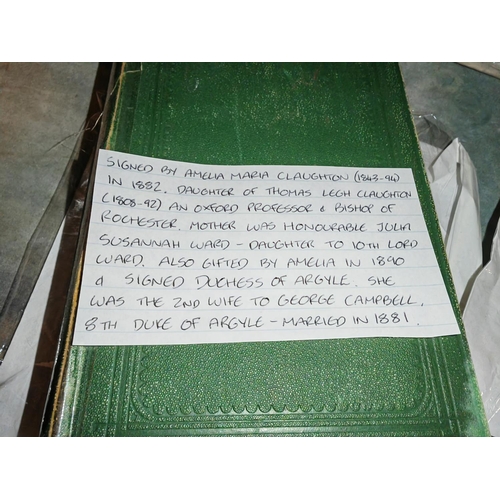 SIGNED BY AMELIA MARIA CLAUGHTON (1843-94)
IN 1882. DAUGHTER OF THOMAS LEGH CLAUGHTON
(1808-92) AN OXFORD PROFESSOR & BISHOP OF
ROCHESTER. MOTHER WAS HONOURABLE JULIA
SUSANNAH WARD - DAUGHTER TO 10TH LORD
WARD. ALSO GIFTED BY AMELIA IN 1890
& SIGNED DUCHESS OF ARGYLE. SHE
WAS THE 2ND WIFE TO GEORGE CAMPBELL,
8TH DUKE OF ARGYLE - MARRIED IN 1881.